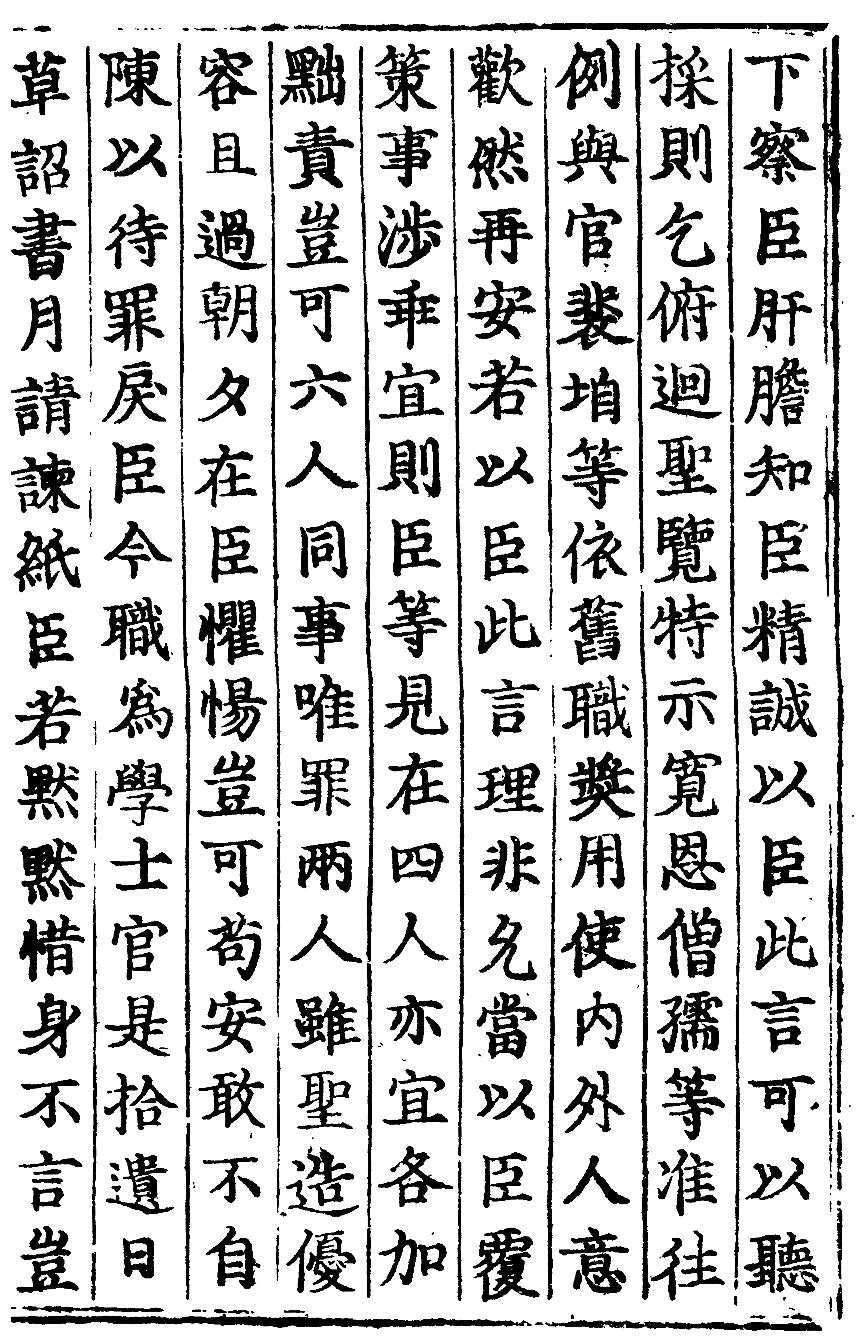 下察臣肝膽知臣精誠以臣此言可以聽
採則乞俯迴聖覽特示寛恩僧孺等准往
例與官裴垍等依舊職奬用使内外人意
歡然再安若以臣此言理非允當以臣覆
策事涉乖宜則臣等見在四人亦宜各加
黜責豈可六人同事唯罪兩人雖聖造優
容且過朝夕在臣懼惕豈可茍安敢不自
陳以待罪戾臣今職爲學士官是拾遺日
草詔書月請諫紙臣若黙黙惜身不言豈